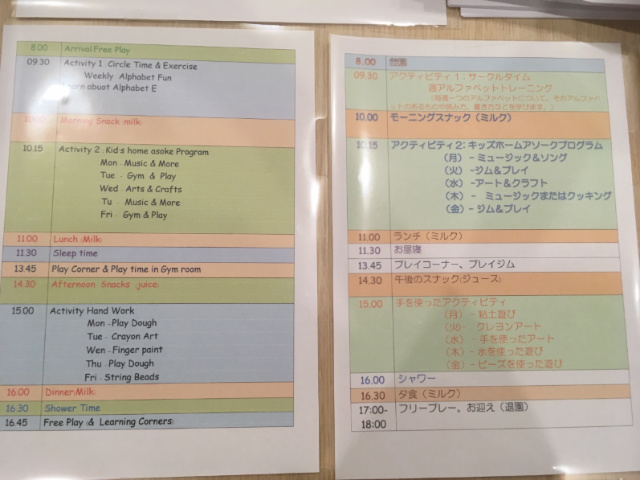 8.00 Arrival/Free Play
09.30 Activity 1 Circle Time & Exercise
Weekly Alphabet Fun
Learn abuot Alphabet E
Morning Snack :milk:
10.15 Activity 2 : Kid's home asoke Program
Mon - Music & More
Tue - Gym & Play
Wed - Arts & Crafts
Tu - Music & More
Fri - Gym & Play
11.00 Lunch :Milk:
11.30 Sleep time
13.45 Play Corner & Play time in Gym room
14.30 Afternoon Snacks :juice:
15.00 Activity Hand Work
Mon - Play Dough
Tue - Crayon Art
Wen - Finger paint
Thu - Play Dough
Fri - String Beads
16.00 Dinner :Milk:
16.30 Shower Time
16.45 Free Play :& Learning Corners:
8.00 登園
09.30 アクティビティ1:サークルタイム
週アルファベットトレーニング
10.00 モーニングスナック(ミルク)
10.15 アクティビティ2:キッズホームアソークプログラム
(月) - ミュージック&ソング
(火) -ジム&プレイ
(水) -アート&クラフト
(木) - ミュージックまたはクッキング
(金) -ジム&プレイ
11.00 ランチ(ミルク)
11.30 お昼寝
13.45 プレイコーナー、プレイジム
14.30 午後のスナック(ジュース)
15.00 手を使ったアクティビティ
(月) - 粘土遊び
(火) - クレヨンアート
(水) - 手を使ったアート
(木) - 水を使った遊び
(金) - ビーズを使った遊び
16.00 シャワー
16.30 夕食(ミルク)
17:00- フリープレー、お迎え(退園)
18:00